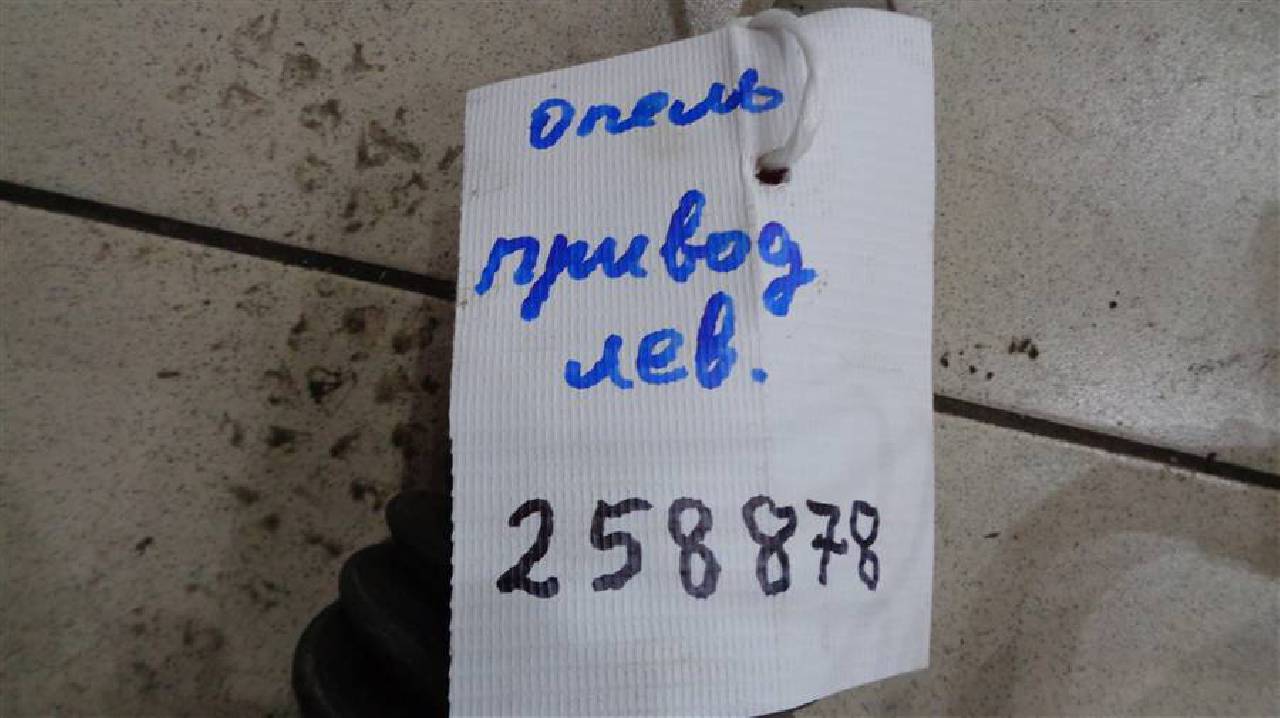 Опель
привод
лев.
258878